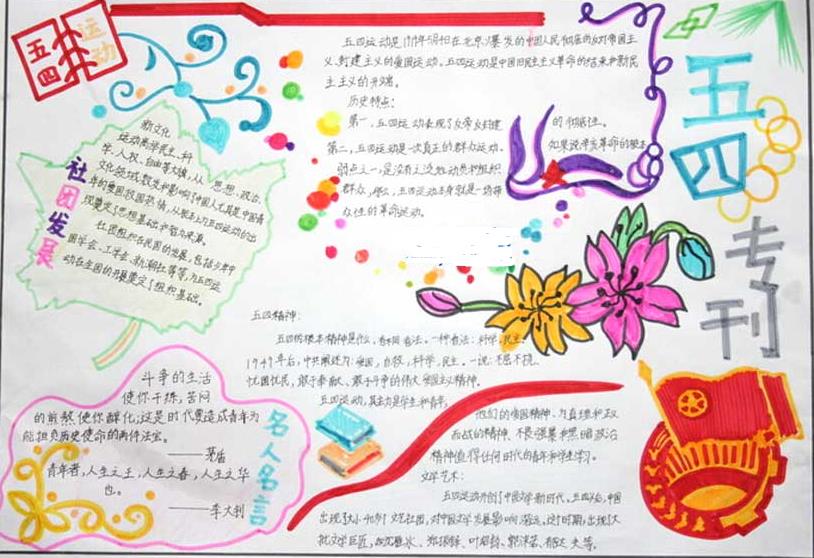 五四
运动
五四运动是1919年5月4日在北京爆发的中国人民彻底的反对帝国主
义、封建主义的爱国运动。五四运动是中国旧民主主义革命的结束和新民
主主义的开端。
历史特点:
第一,五四运动表现了反帝反封建的彻底性。
第二,五四运动是一次真正的群众运动。如果说辛亥革命的根本
弱点之一,是没有
群众,那么,五四运动本身就是一场群
众性的革命运动。
五四
专刊
社团发展
新文化
运动高举民主、科
学、人权、自由等大旗,从思想、政治、
文化领域
社团组织在民国的发展,包括少年中
国学会、工学会、新潮社等等,为五四运
动在全国的开展奠定了组织基础。
五四精神:
五四的根本精神是什么,有不同看法。一种看法:科学,民主。
1949年后,中共概述为:爱国,自救,科学,民主。一说:不屈不挠、
忧国忧民,敢于奉献、敢于斗争的伟大爱国主义精神。
五四运动,其主力是学生和青年,
他们的爱国精神、为真理和正
义而战的精神、不畏强暴和黑暗政治
精神值得任何时代的青年和学生学习。
文学艺术:
五四运动开创了中国文学新时代。五四以后,中国
出现了大小40多个文艺社团,对中国文学发展影响深远。这个时期,出现了大
批文学巨匠,如沈雁冰、郑振铎、叶绍钧、郭沫若、郁达夫等。
名人名言
斗争的生活
使你干练,苦闷
的煎熬使你醇化;这是时代要造成青年为
能担负历史使命的两件法宝。
——茅盾
青年者,人生之王,人生之春,人生之华
也。
——李大钊